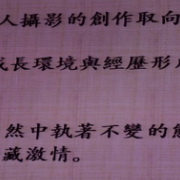 人攝影的創作取向
成長環境與經歷形
然中執著不變的
藏激情。